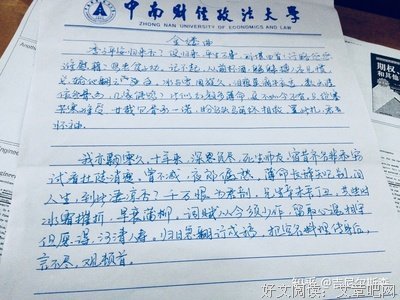 中南财经政法大学
ZHONG NAN UNIVERSITY OF ECONOMICS AND LAW
金缕曲
季子平安否?便归来,平生万事,那堪回首!行路悠悠
谁慰藉?母老家贫子幼。记不起,从前杯酒。魑魅搏人应见惯,
总输他覆雨翻云手。冰与雪,周旋久。泪痕莫滴牛衣透,数天涯
依然骨肉,几家能够?比似红颜多薄命,更不如今还有。只绝塞
苦寒难受。廿载包胥承一诺,盼乌头马角终相救。置此札,君
怀袖。
我亦飘零久。十年来,深恩负尽,死生师友。宿昔齐名非忝窃
试看杜陵消瘦,曾不减,夜郎僝僽。薄命长辞知己别,问
人生,到此凄凉否?千万恨,为君剖。兄生辛未吾丁丑,共些时
冰霜摧折,早衰蒲柳。词赋从今须少作,留取心魂相守。
但愿得,河清人寿。归日急翻行戍稿,把空名料理传身后。
言不尽,观顿首。
期权
知乎 @吉尼尔斯先
好文阅读:文章吧网